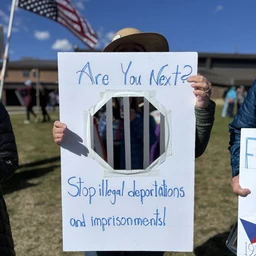 Are You Next?
Stop illegal deportations
and imprisonments!